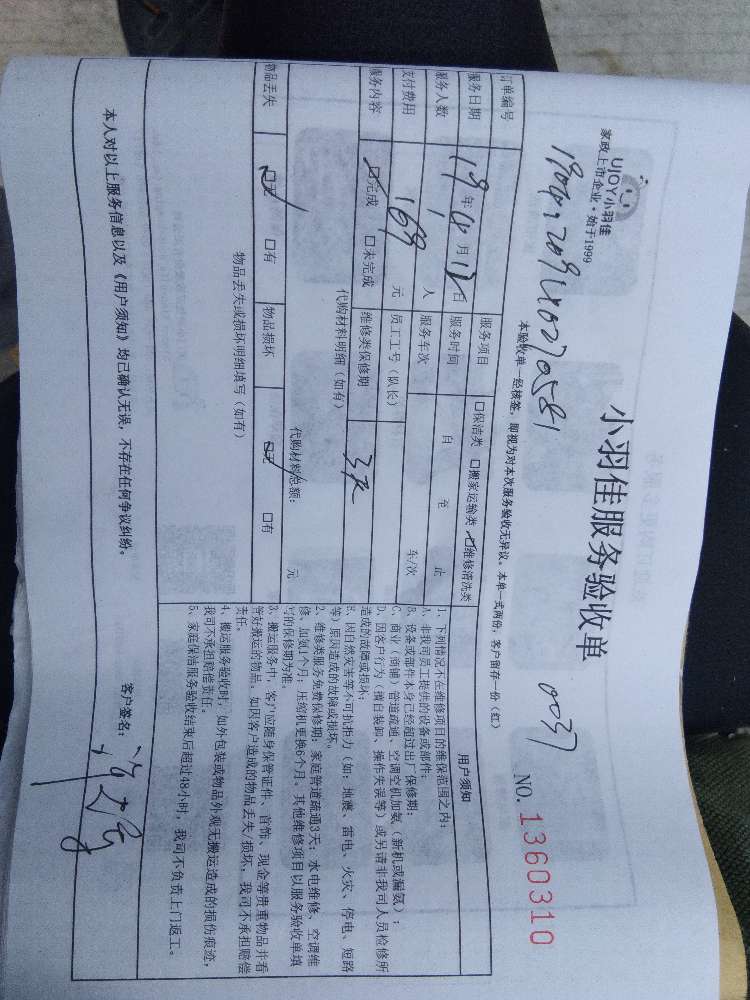 UJOY小羽佳
家政上市企业·始于1999
小羽佳服务验收单
0037
NO. 1360310
本验收单一经核签,即视为对本次服务验收无异议。本单一式两份,客户留存一份(红)
订单编号
服务项目 口保洁类 口搬家运输类 维修清洗类
服务日期 19年4月17日 服务时间 自 至 止
服务人数 1人 服务车次 车/次
支付费用 169元 员工工号(队长)
服务内容 口完成 口未完成 维修类保修期 3天
代购材料明细(如有)
代购材料总额: 元
物品丢失 口无 口有 物品损坏 口无 口有
物品丢失或损坏明细填写(如有)
用户须知
1、下列情况不在维修项目的维保范围之内:
A、非我司员工提供的设备或部件;
B、设备或部件本身已经超过出厂保修期;
C、商业(商铺)管道疏通、空调空机加氨(新机或漏氨);
D、因客户行为(擅自装卸、操作失误等)或另请非我司人员检修所
造成的故障或损坏;
E、因自然灾害等不可抗拒力(如:地震、雷电、火灾、停电、短路
等)原因造成的故障或损坏。
2、维修类服务免费保修期:家庭管道疏通3天;水电维修、空调维
修、加氨1个月,压缩机更换6个月。其他维修项目以服务验收单填
写的保修期为准。
3、搬运服务中,客户应随身保管证件、首饰、现金等贵重物品并看
管好搬运的物品。如因客户造成的物品丢失/损坏,我司不承担赔偿
责任。
4、搬运服务验收时,如外包装或物品外观无搬运造成的损伤痕迹,
我司不承担赔偿责任。
5、家庭保洁服务验收结束后超过48小时,我司不负责上门返工。
本人对以上服务信息以及《用户须知》均已确认无误,不存在任何争议纠纷。
客户签名: